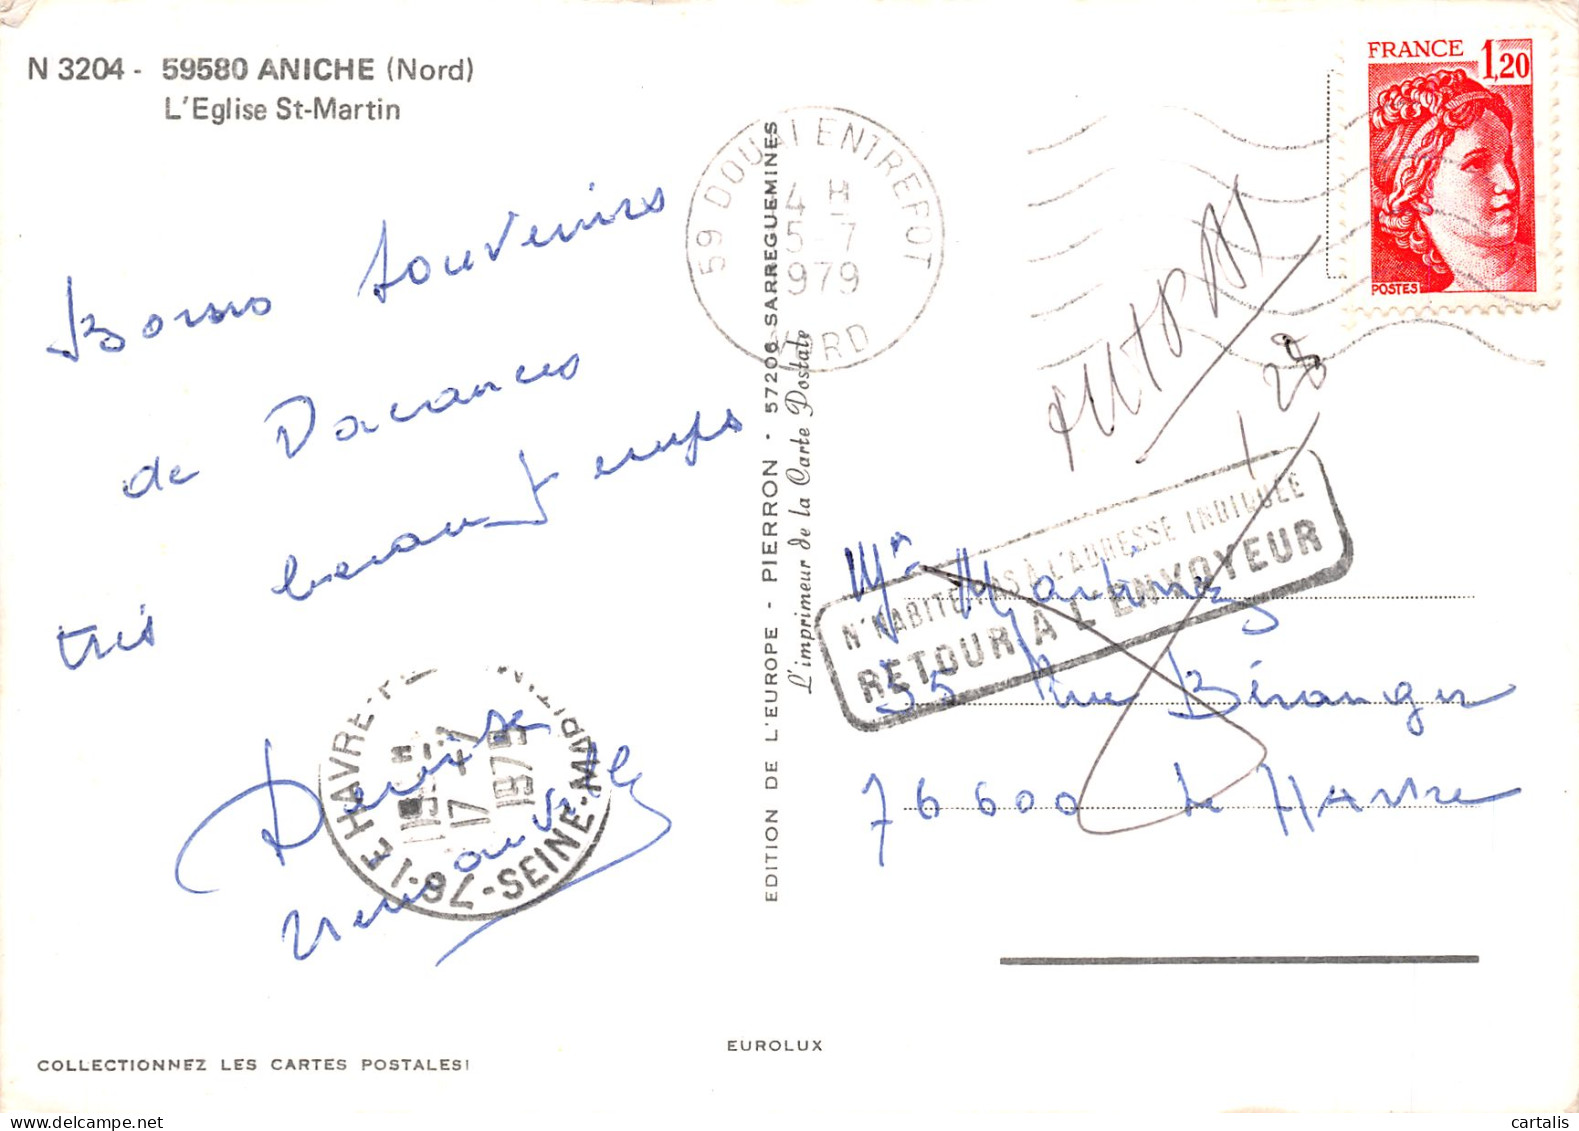 N 3204 - 59580 ANICHE (Nord)
L'Eglise St-Martin
FRANCE 1,20
POSTES
59 DOUAI ENTREPOT
4 H
5-7
1979
NORD
Bons souvenirs
de Vacances
très beau temps
Denise
28
N'HABITE PAS À L'ADRESSE INDIQUÉE
RETOUR À L'ENVOYEUR
Mr Martinez
35 Rue Béranger
76600 Le Havre
LE HAVRE
17-7
76-SEINE-MARIT
EDITION DE L'EUROPE - PIERRON - 57206 SARREGUEMINES
L'imprimeur de la Carte Postale
EUROLUX
COLLECTIONNEZ LES CARTES POSTALES!
cartalis
delcampe.net